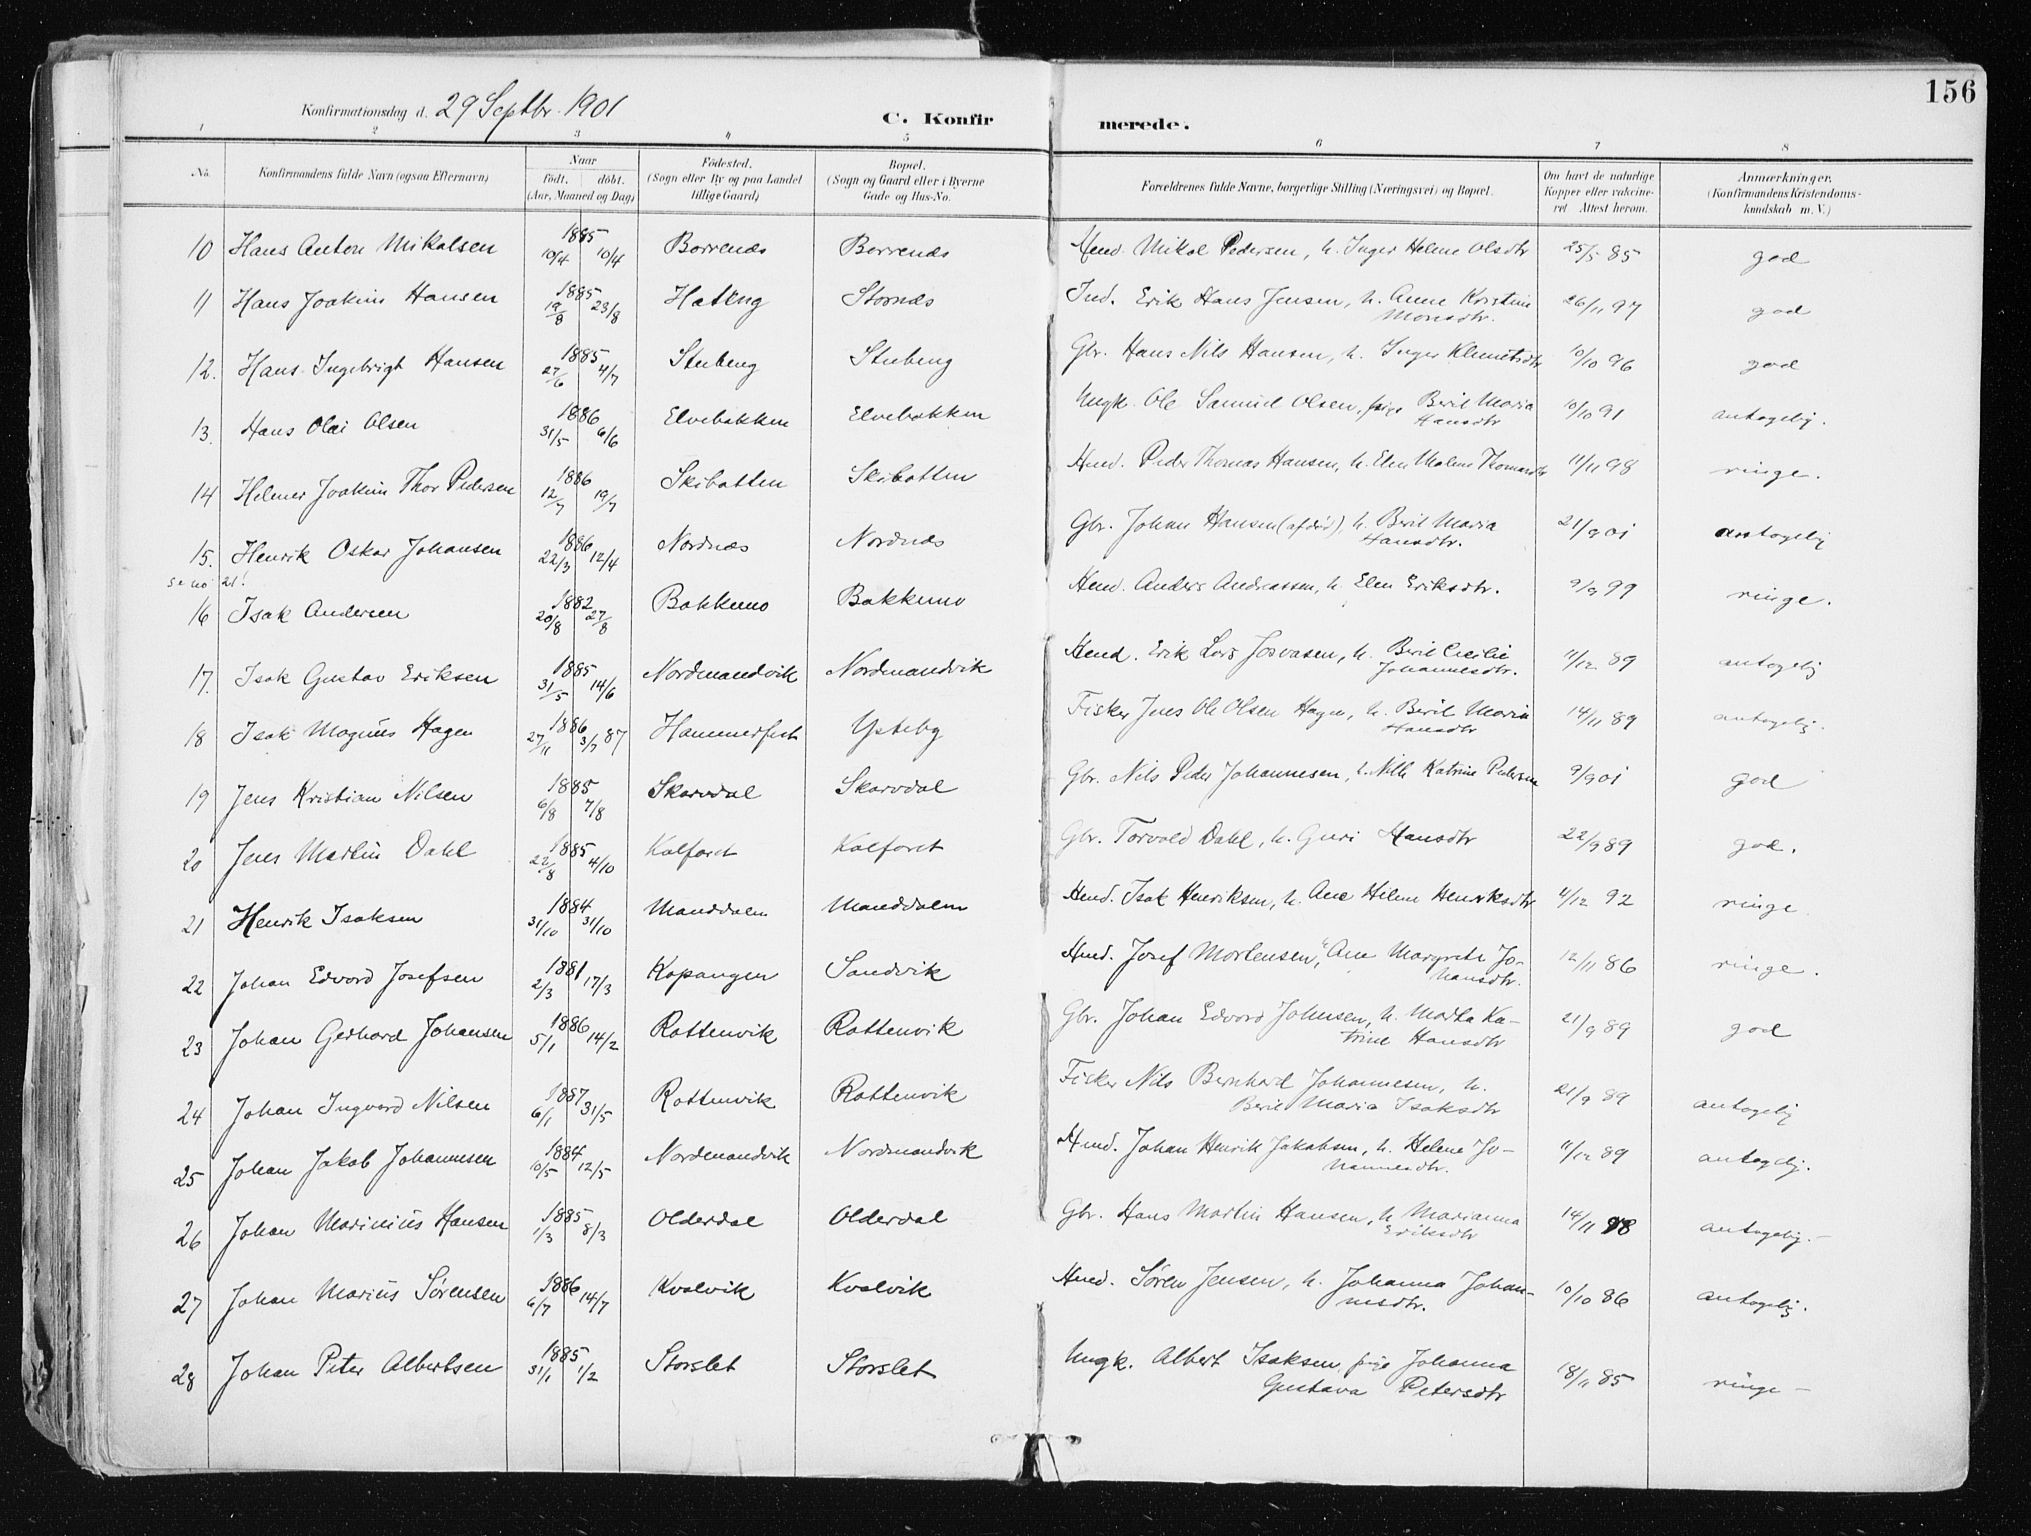 156
Konfirmationsdag d. 29 Septbr. 1901 C. Konfir merede.
1 2 3 4 5 6 7 8
No. Konfirmandens fulde Navn (ogsaa Efternavn) Naar födt. döbt. (Aar, Maaned og Dag) Födested. (Sogn eller By og paa Landet tillige Gaard) Bopæl. (Sogn og Gaard eller i Byerne Gade og Hus-No. Forældrenes fulde Navne, borgerlige Stilling (Næringsvei) og Bopæl. Om havt de naturlige Kopper eller vakcineret. Attest herom. Anmærkninger. (Konfirmandens Kristendomskundskab m. V.)
10 Hans Anton Mikalsen 1885 10/4 10/4 Borrenes Borrenes Hmd. Mikal Pedersen, h. Inger Helene Olsdtr 25/5 85 god
11 Hans Joakim Hansen 1885 19/8 23/8 Hatteng Stornes Ind. Erik Hans Jensen, h. Anne Kristine Monsdtr. 26/11 97 god
12. Hans Ingebrigt Hansen 1885 27/6 4/7 Stubeng Stubeng Gbr. Hans Nils Hansen, h. Inger Klemetsdtr 10/10 96 god
13. Hans Olai Olsen 1886 31/5 6/6 Elvebakken Elvebakken Ungk. Ole Samuel Olsen, pige Beril Maria Hansdtr 10/10 91 antagelig.
14 Helmer Joakim Thor Pedersen 1886 12/7 19/7 Skibotten Skibotten Hmd. Peder Thomas Hansen, h. Elen Malene Thomasdtr 11/11 98 ringe.
15. Henrik Oskar Johansen 1886 22/3 12/4 Nordnæs Nordnæs Gbr. Johan Hansen (afdød), h. Beril Maria Hansdtr. 21/9 01 antagelig
se no 21!
16 Isak Andersen 1882 20/8 27/8 Bakkemo Bakkemo Hmd. Anders Andreassen, h. Elen Eriksdtr. 9/9 99 ringe.
17. Isak Gustav Eriksen 1885 31/5 14/6 Nordmandvik Nordmandvik Hmd. Erik Lars Josvasen, h. Beril Cecilie Johannesdtr. 11/12 89 antagelig
18 Isak Magnus Hagen 1886 27/11 3/7 87 Hammerfest Ysteby Fisker Jens Ole Olsen Hagen, h. Beril Maria Hansdtr 14/11 89 antagelig.
19 Jens Kristian Nilsen 1885 6/8 7/8 Skarvdal Skarvdal Gbr. Nils Peder Johannesen, h. Nille Katrine Pedersen 9/9 01 god
20 Jens Martin Dahl 1885 22/8 4/10 Kalforet Kalforet Gbr. Torvald Dahl, h. Guri Hansdtr 22/9 89 god.
21 Henrik Isaksen 1884 31/10 31/10 Manddalen Manddalen Hmd. Isak Henriksen, h. Ane Helene Henriksdtr 4/12 92 ringe.
22 Johan Edvard Josefsen 1881 2/3 17/3 Kopangen Sandvik Hmd. Josef Mortensen, h Ane Margrete Johansdtr. 12/11 86 ringe.
23 Johan Gerhard Johansen 1886 5/1 14/2 Rottenvik Rottenvik Gbr. Johan Edvard Johnsen, h. Marta Katrine Hansdtr 21/9 89 god
24 Johan Ingvard Nilsen 1887 6/1 31/5 Rottenvik Rottenvik Fisker Nils Bernhard Johannesen, h. Beril Maria Isaksdtr 21/9 89 antagelig
25 Johan Jakob Johannesen 1884 10/5 12/5 Nordmandvik Nordmandvik Hmd. Johan Henrik Jakobsen, h. Helene Johannesdtr. 11/12 89 antagelig.
26 Johan Marinius Hansen 1885 1/3 8/3 Olderdal Olderdal Gbr. Hans Martin Hansen, h. Marianna Eriksdtr 14/11 98 antagelig.-
27 Johan Marius Sørensen 1886 6/7 14/7 Kvalvik Kvalvik Hmd. Søren Jensen, h. Johanna Johannesdtr. 10/10 86 antagelig.
28 Johan Peter Albertsen 1885 31/1 1/2 Storslet Storslet Ungk. Albert Isaksen, pige Johanna Gustava Petersdtr 18/11 85 ringe -